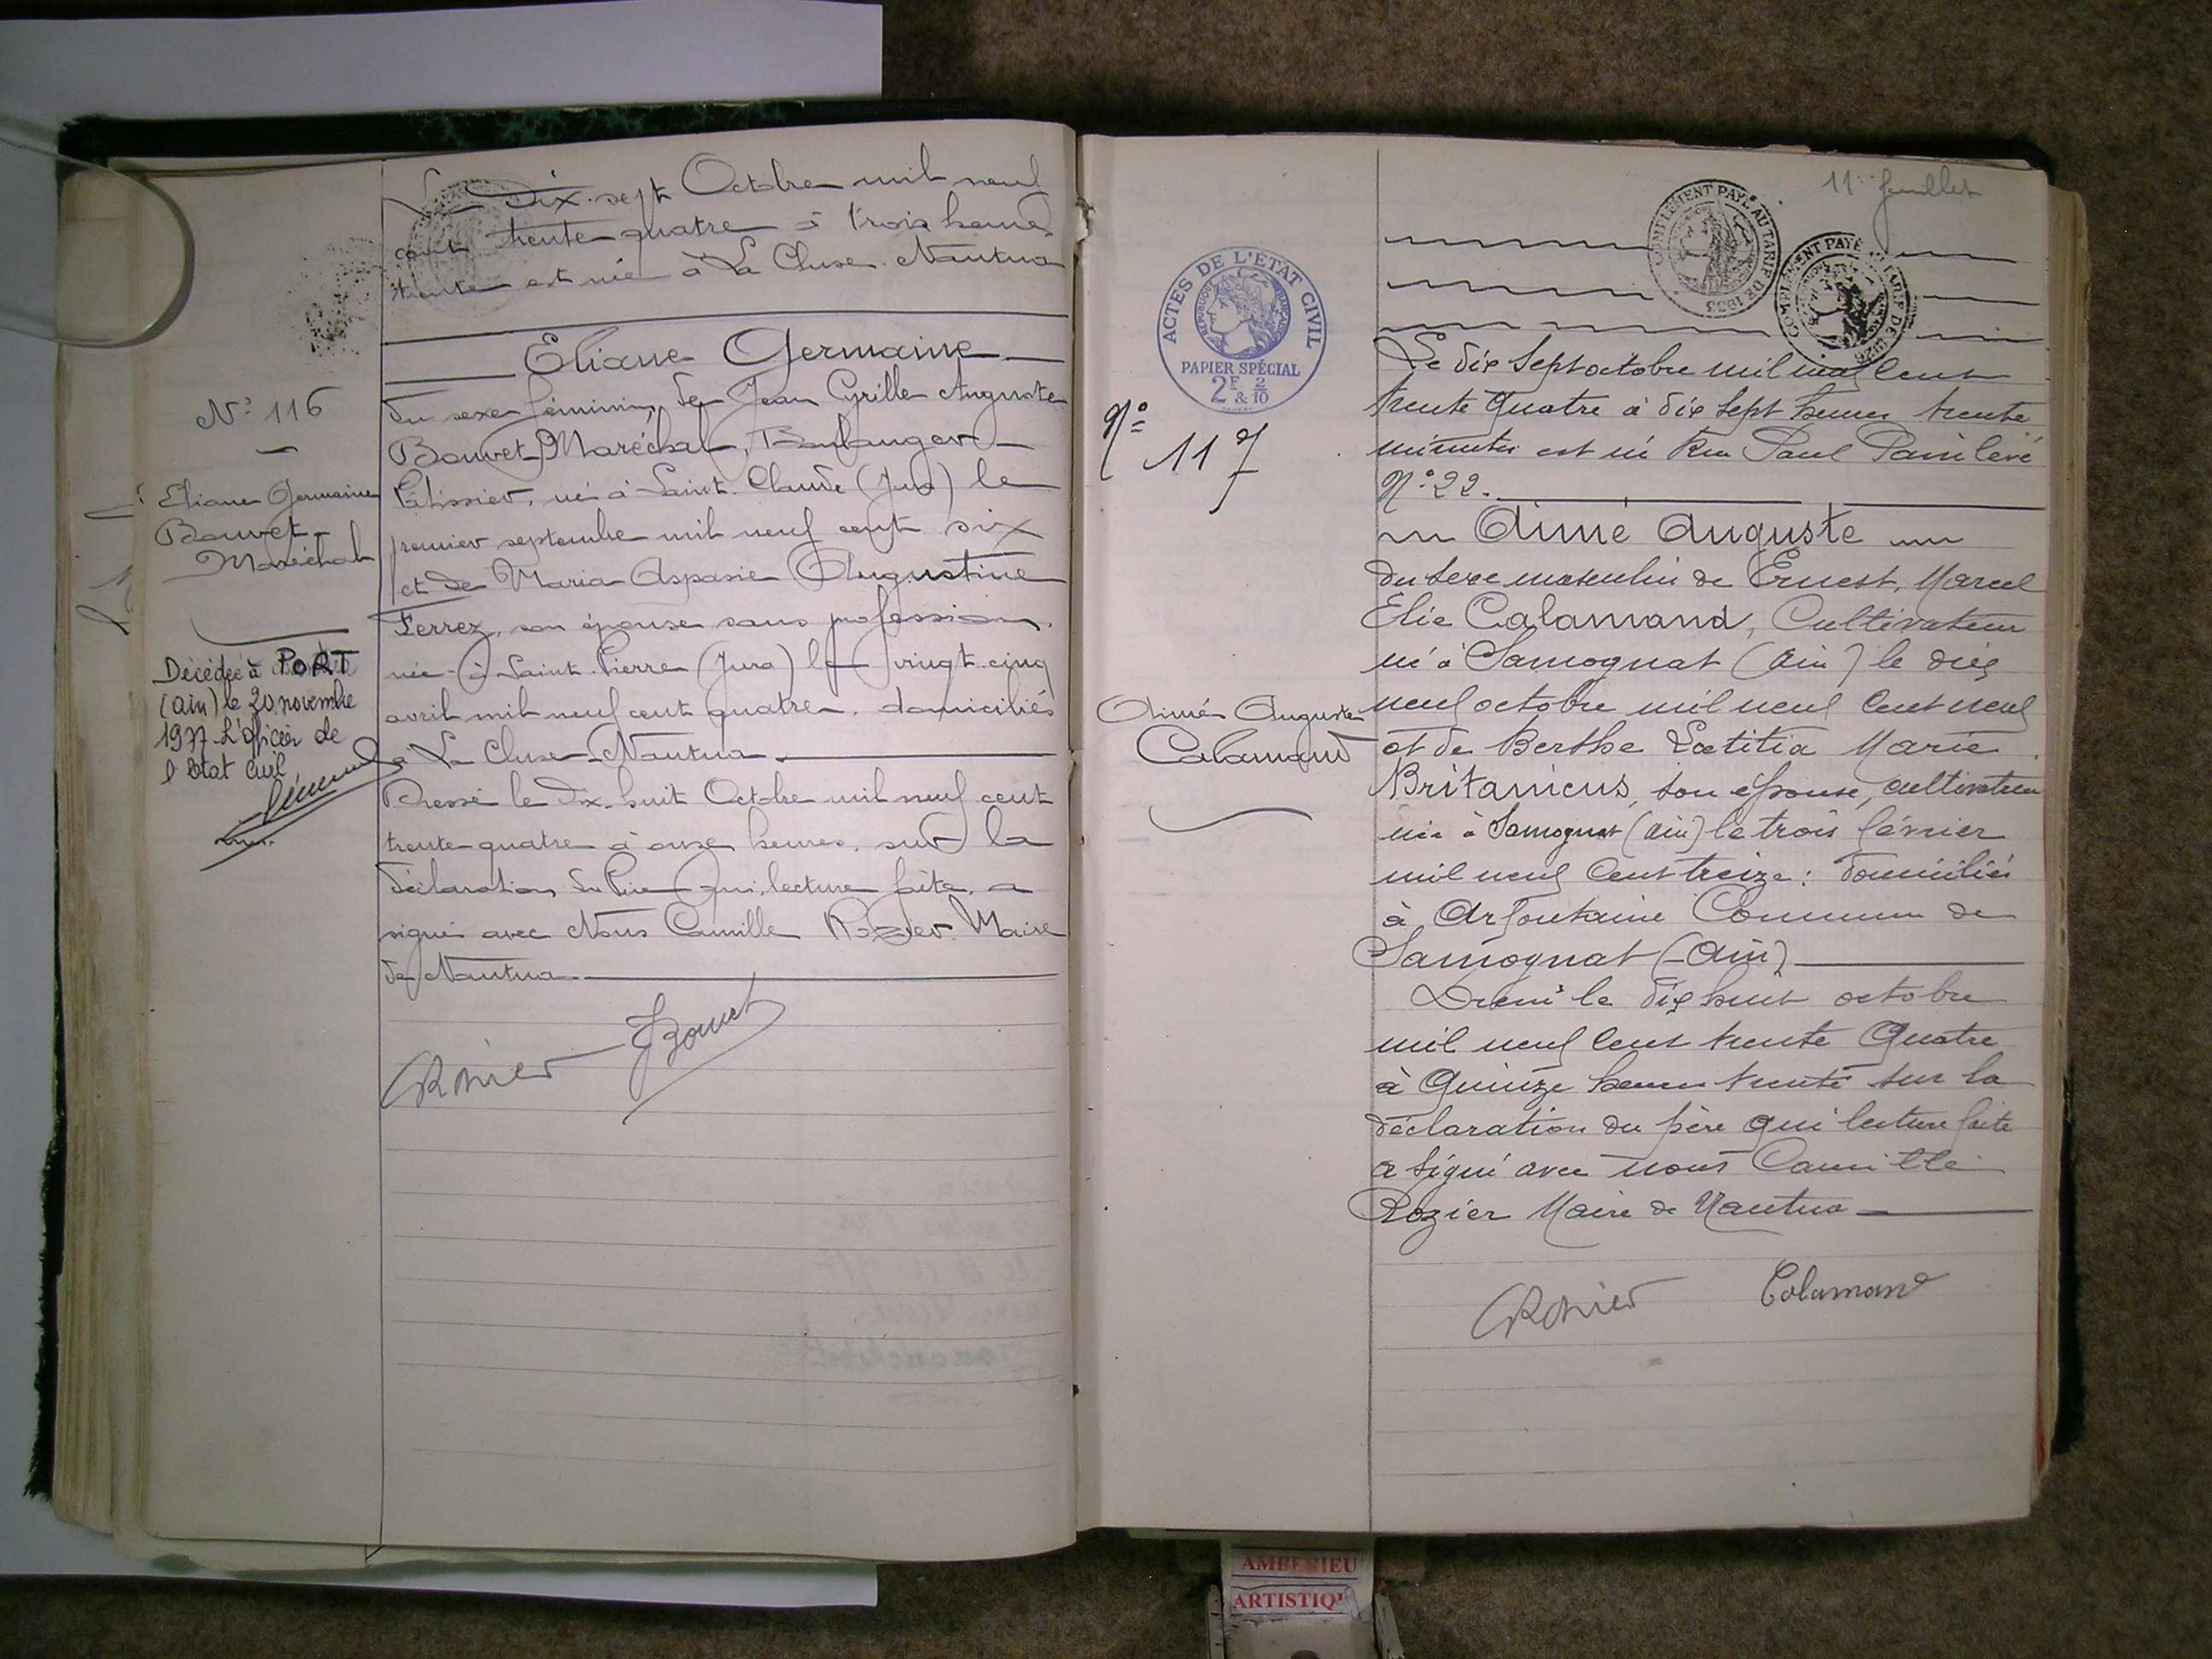 Le Dix-sept Octobre mil neuf
cent trente quatre à trois heures
trente est née à La Cluse Nantua
Eliane Germaine
du sexe féminin, de Jean Cyrille Auguste
Bouvet-Maréchal, Boulanger-
Pâtissier, né à Saint-Claude (Jura) le
premier septembre mil neuf cent six
et de Maria Aspasie Augustine
Ferrez, son épouse sans profession,
née à Saint-Pierre (Jura) le vingt-cinq
avril mil neuf cent quatre, domiciliés
à La Cluse-Nantua
Dressé le Dix-huit Octobre mil neuf cent
trente quatre à onze heures, sur la
déclaration du Père qui, lecture faite, a
signé avec Nous Camille Rozier Maire
de Nantua
CRozier JBouvet
N° 116
Eliane Germaine
Bouvet-
Maréchal
Décédée à PORT
(Ain) le 20 novembre
1977 L'officier de
l'Etat Civil
11e feuillet
COMPLEMENT PAYÉ AU TARIF DE 1933
COMPLEMENT PAYÉ AU TARIF DE
ACTES DE L'ETAT CIVIL
REPUBLIQUE FRANÇAISE
PAPIER SPÉCIAL
2F & 2/10
N°
117
Aimé Auguste
Calamand
Le dix sept octobre mil neuf cent
trente quatre à dix sept heures trente
minutes est né Rue Paul Painlevé
N° 22.
Aimé Auguste
du sexe masculin de Ernest, Marcel
Elie Calamand, Cultivateur
né à Samognat (Ain) le dix
neuf octobre mil neuf cent neuf
et de Berthe Lœtitia Marie
Britanicus, son épouse, cultivateur
née à Samognat (Ain) le trois février
mil neuf cent treize : domiciliés
à Arfontaine Commune de
Samognat (Ain)
Dressé le dix huit octobre
mil neuf cent trente Quatre
à Quinze heures trente sur la
déclaration du père qui lecture faite
a signé avec nous Camille
Rozier Maire de Nantua
CRozier Calamand
AMBERIEU
ARTISTIQU